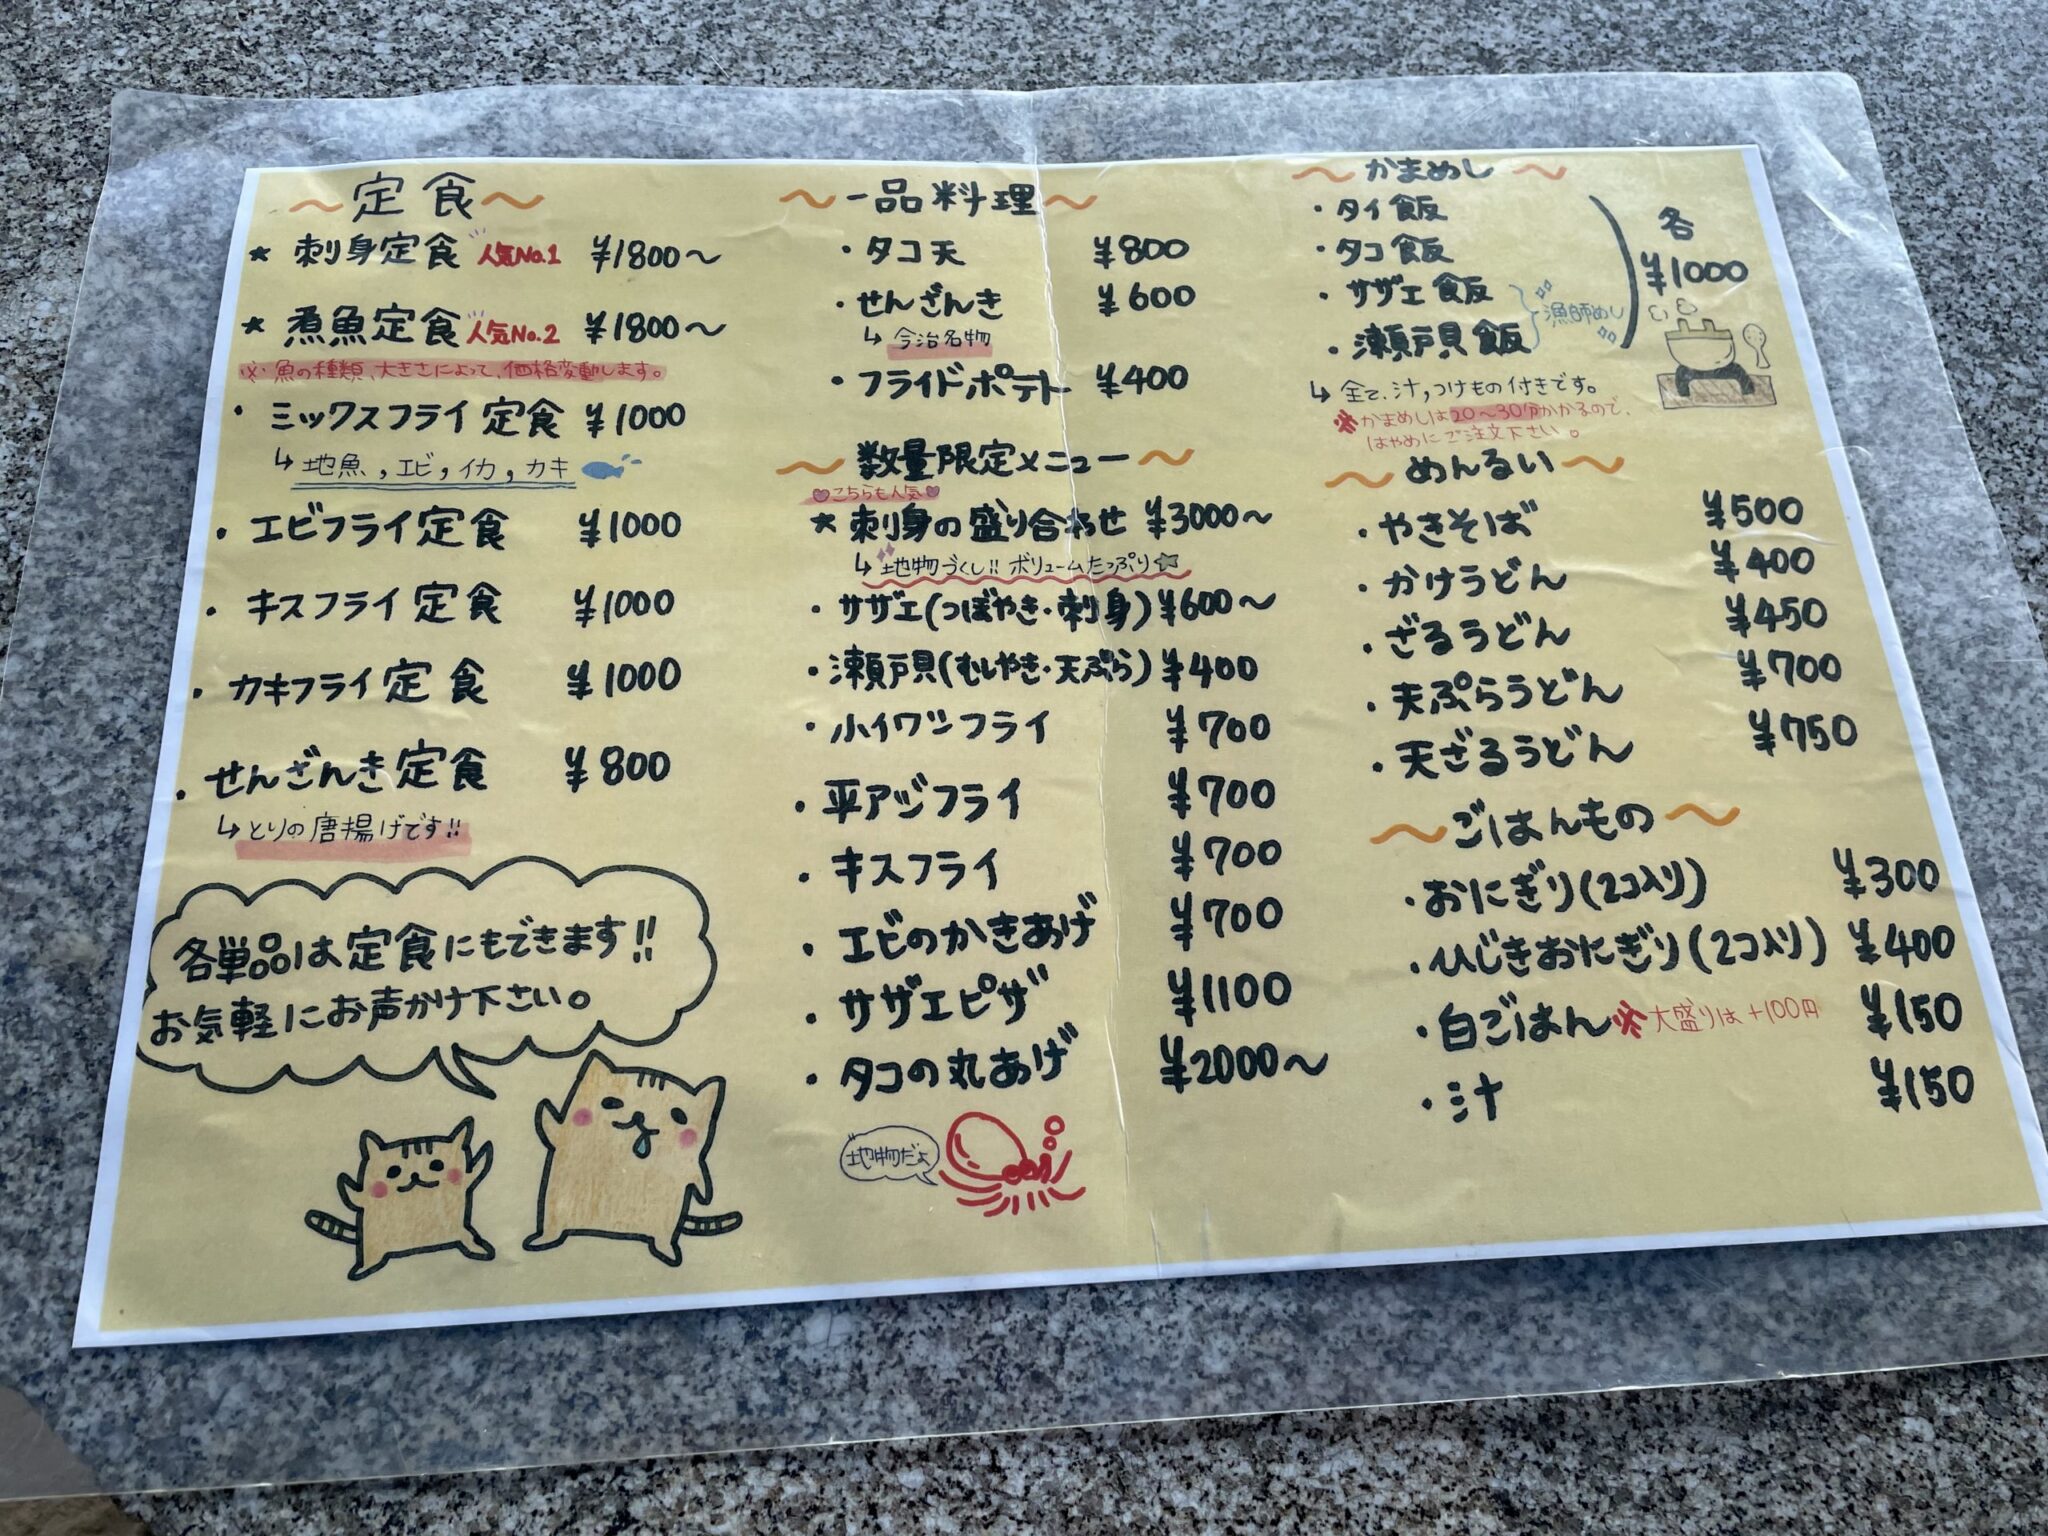 〜定食〜
★ 刺身定食 人気No.1 ¥1800〜
★ 煮魚定食 人気No.2 ¥1800〜
※魚の種類、大きさによって、価格変動します。
・ミックスフライ定食 ¥1000
↳地魚,エビ,イカ,カキ
・エビフライ定食 ¥1000
・キスフライ定食 ¥1000
・カキフライ定食 ¥1000
・せんざんき定食 ¥800
↳とりの唐揚げです!!
各単品は定食にもできます!!
お気軽にお声かけ下さい。
〜一品料理〜
・タコ天 ¥800
・せんざんき ¥600
↳今治名物
・フライドポテト ¥400
〜数量限定メニュー〜
♥こちらも人気♥
★刺身の盛り合わせ ¥3000〜
↳地物づくし!! ボリュームたっぷり☆
・サザエ(つぼやき・刺身) ¥600〜
・瀬戸貝(むしやき・天ぷら) ¥400
・小イワシフライ ¥700
・平アジフライ ¥700
・キスフライ ¥700
・エビのかきあげ ¥700
・サザエピザ ¥1100
・タコの丸あげ ¥2000〜
地物だよ
〜かまめし〜
・タイ飯
・タコ飯
・サザエ飯
・瀬戸貝飯
漁師めし
各
¥1000
↳全て、汁,つけもの付きです。
※かまめしは20〜30分かかるので、
はやめにご注文下さい。
〜めんるい〜
・やきそば ¥500
・かけうどん ¥400
・ざるうどん ¥450
・天ぷらうどん ¥700
・天ざるうどん ¥750
〜ごはんもの〜
・おにぎり(2コ入り) ¥300
・ひじきおにぎり(2コ入り) ¥400
・白ごはん ※大盛りは+100円 ¥150
・汁 ¥150